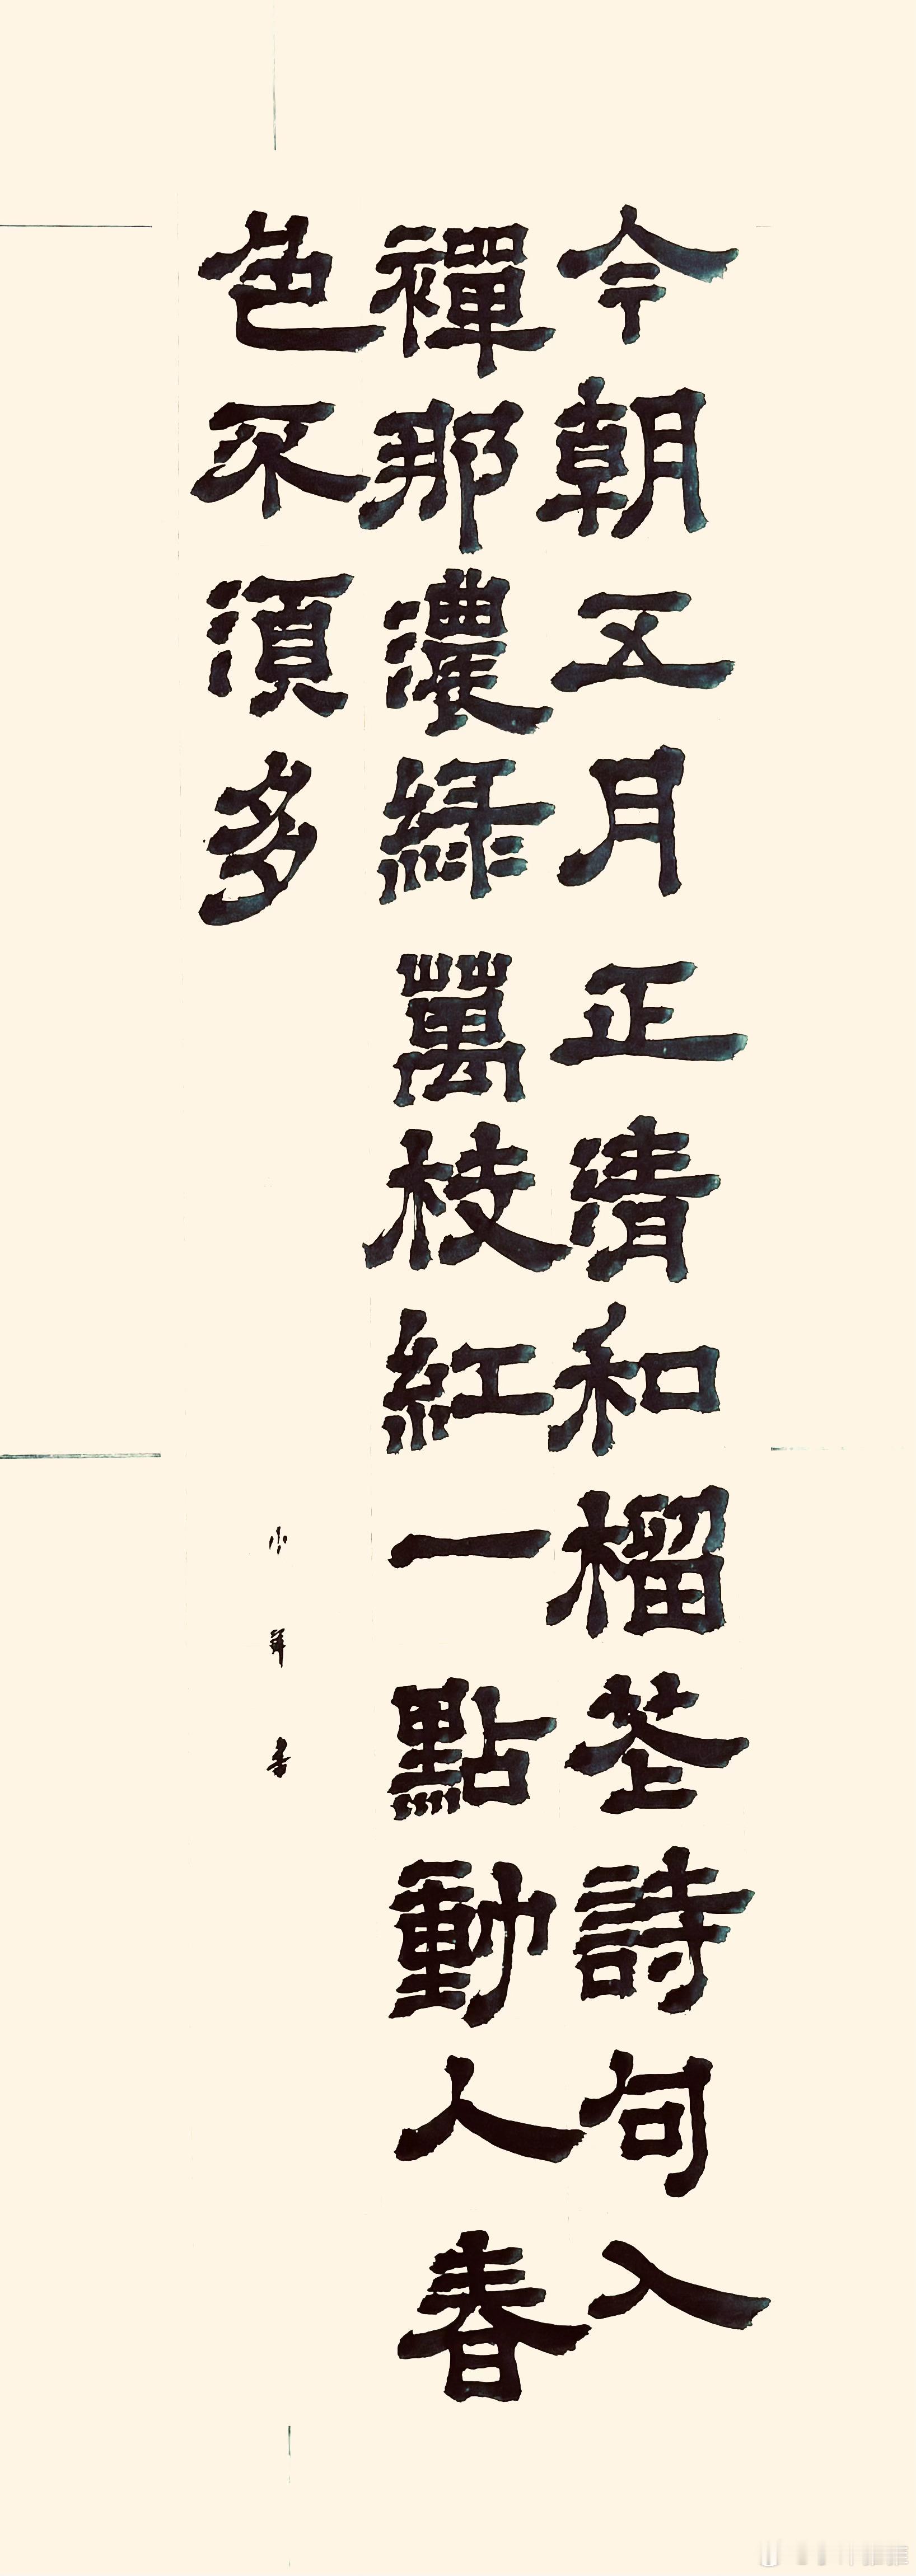 今朝五月正清和榴花詩句入
禪那濃綠萬枝紅一點動人春
色不須多
小輝書